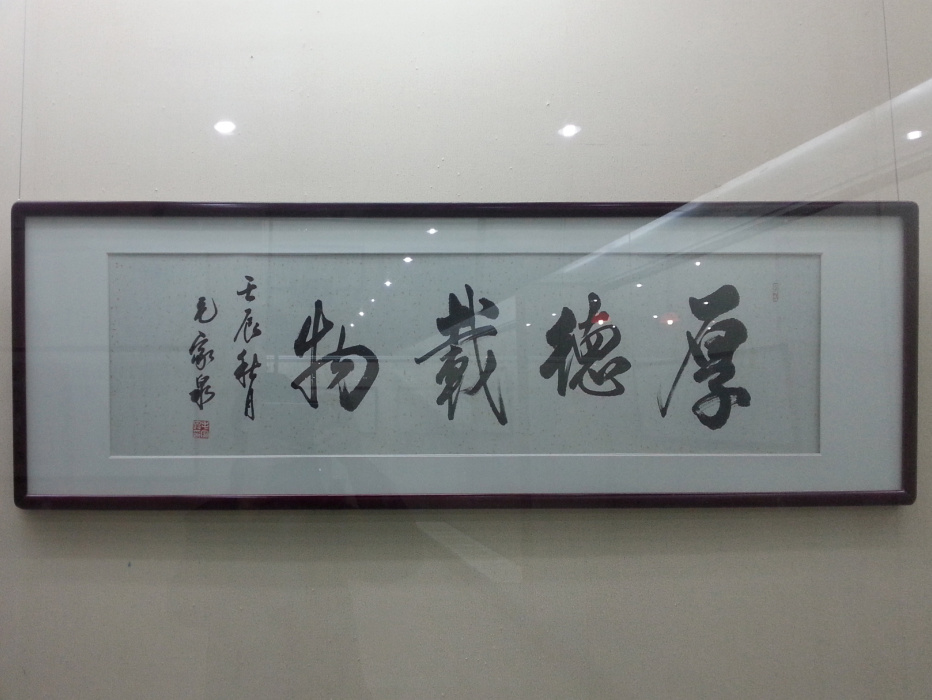 厚德載物
壬辰秋月
毛家泉